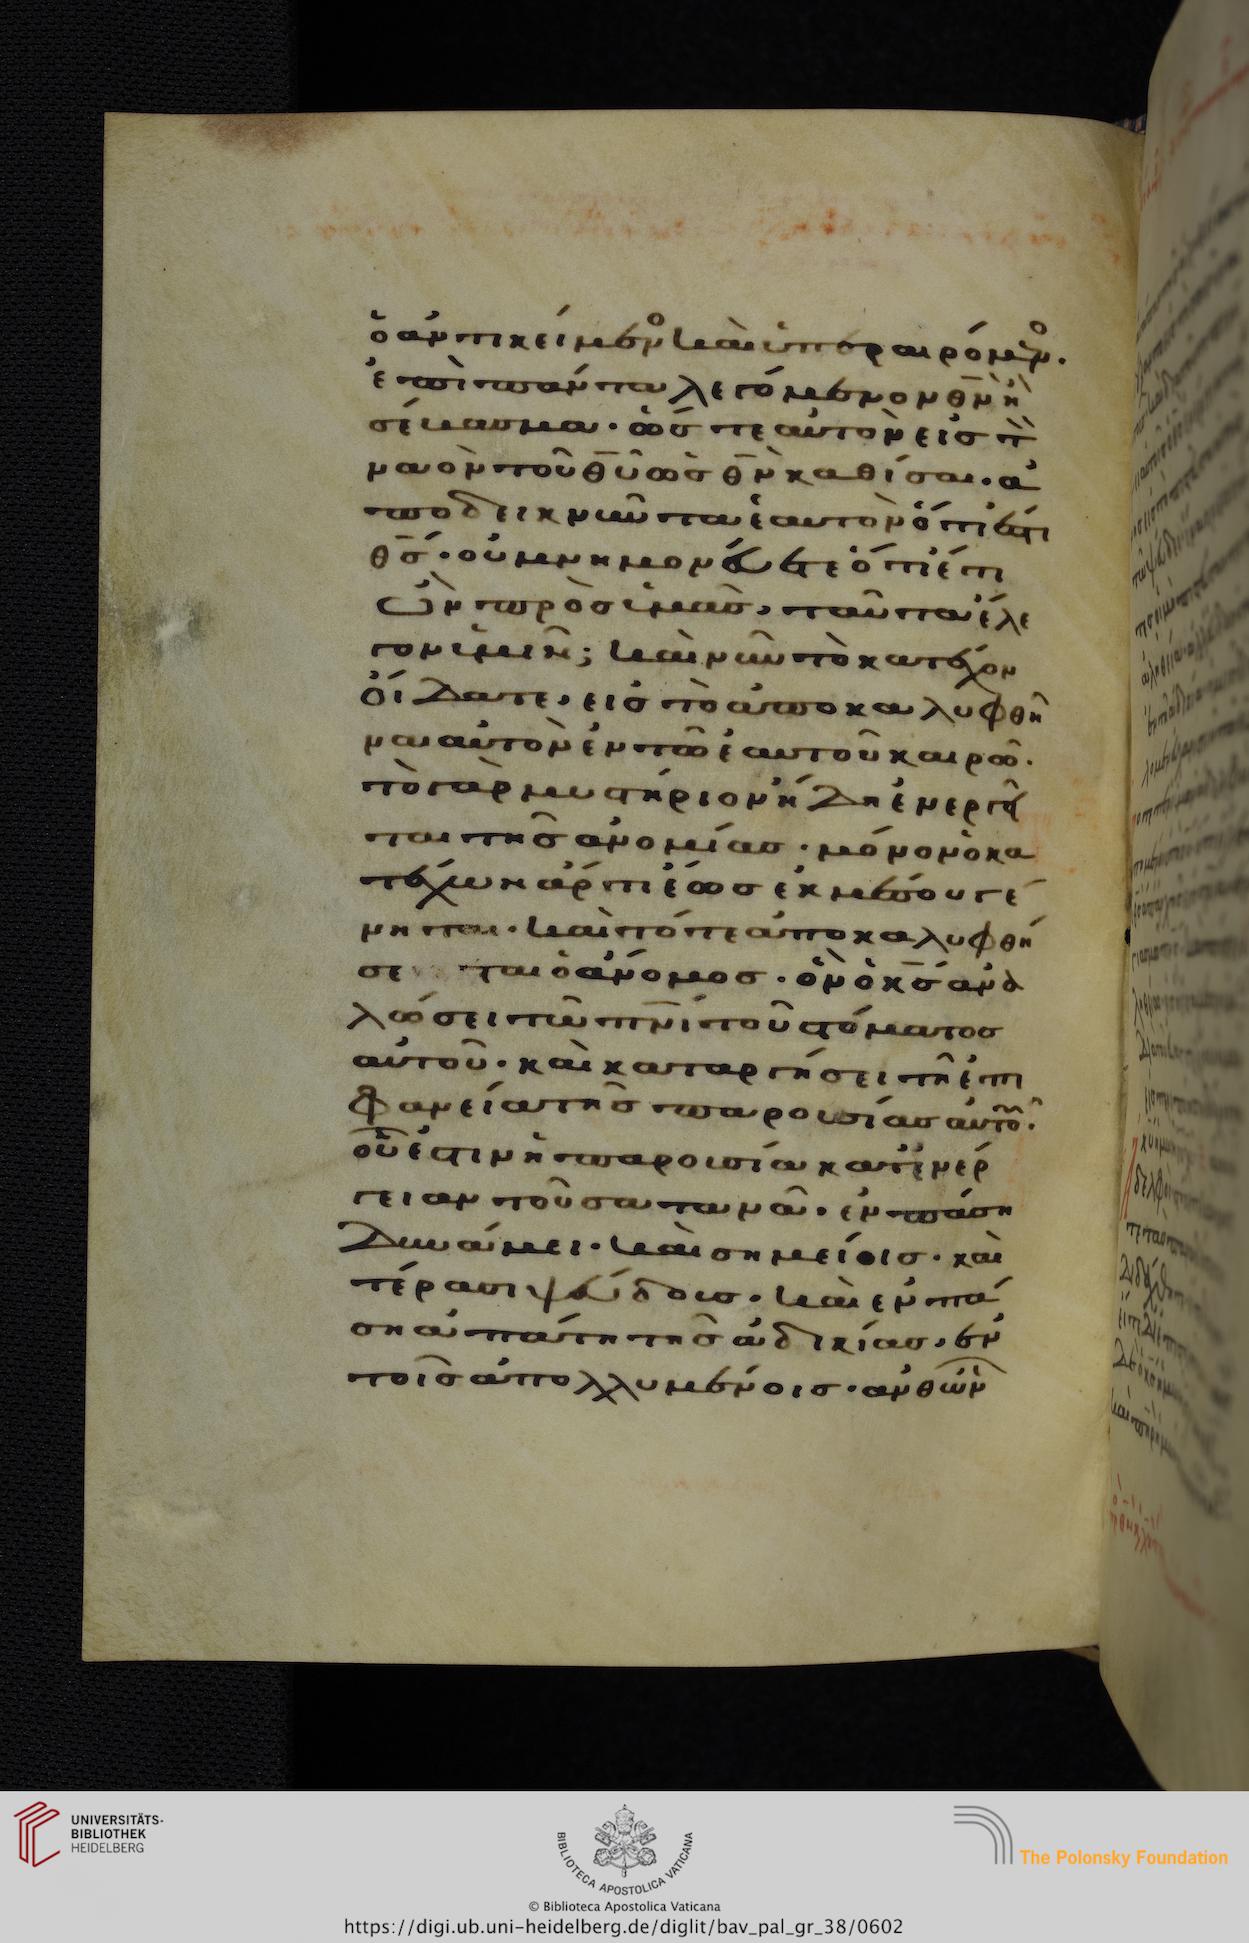 ὁ ἀντικείμενο καὶ ὑπεραιρόμενο.
ἐπὶ πάντα λεγόμενον θν ἢ
σέβασμα· ὥστε αὐτὸν εἰς τὸν
ναὸν τοῦ θυ ὡς θν καθίσαι· ἀ
ποδεικνῦντα ἑαυτὸν ὅτι ἐστι
θς· οὐ μνημονεύετε ὅτι ἔτι
ὢν πρὸς ὑμᾶς, ταῦτα ἔλε
γον ὑμῖν; καὶ νῦν τὸ κατέχον
οἴδατε, εἰς τὸ ἀποκαλυφθῆ
ναι αὐτὸν ἐν τῶ ἑαυτοῦ καιρῶ.
τὸ γὰρ μυστήριον ἤδη ἐνεργεῖ
ται τῆς ἀνομίας· μόνον ὁ κα
τέχων ἄρτι ἕως ἐκ μέσου γέ
νηται· καὶ τότε ἀποκαλυφθή
σεται ὁ ἄνομος· ὃν ὁ κς ἀνα
λώσει τῶ πνι τοῦ στόματος
αὐτοῦ· καὶ καταργήσει τῆ ἐπι
φανεία τῆς παρουσίας αὐτοῦ·
οὗ ἐστιν ἡ παρουσία κατ' ἐνέρ
γειαν τοῦ σατανᾶ· ἐν πάση
δυνάμει· καὶ σημείοις· καὶ
τέρασι ψεύδους· καὶ ἐν πά
ση ἀπάτη τῆς ἀδικίας, ἐν
τοῖς ἀπολλυμένοις· ἀνθ' ὧν
UNIVERSITÄTS-
BIBLIOTHEK
HEIDELBERG
BIBLIOTECA APOSTOLICA VATICANA
The Polonsky Foundation
© Biblioteca Apostolica Vaticana
https://digi.ub.uni-heidelberg.de/diglit/bav_pal_gr_38/0602